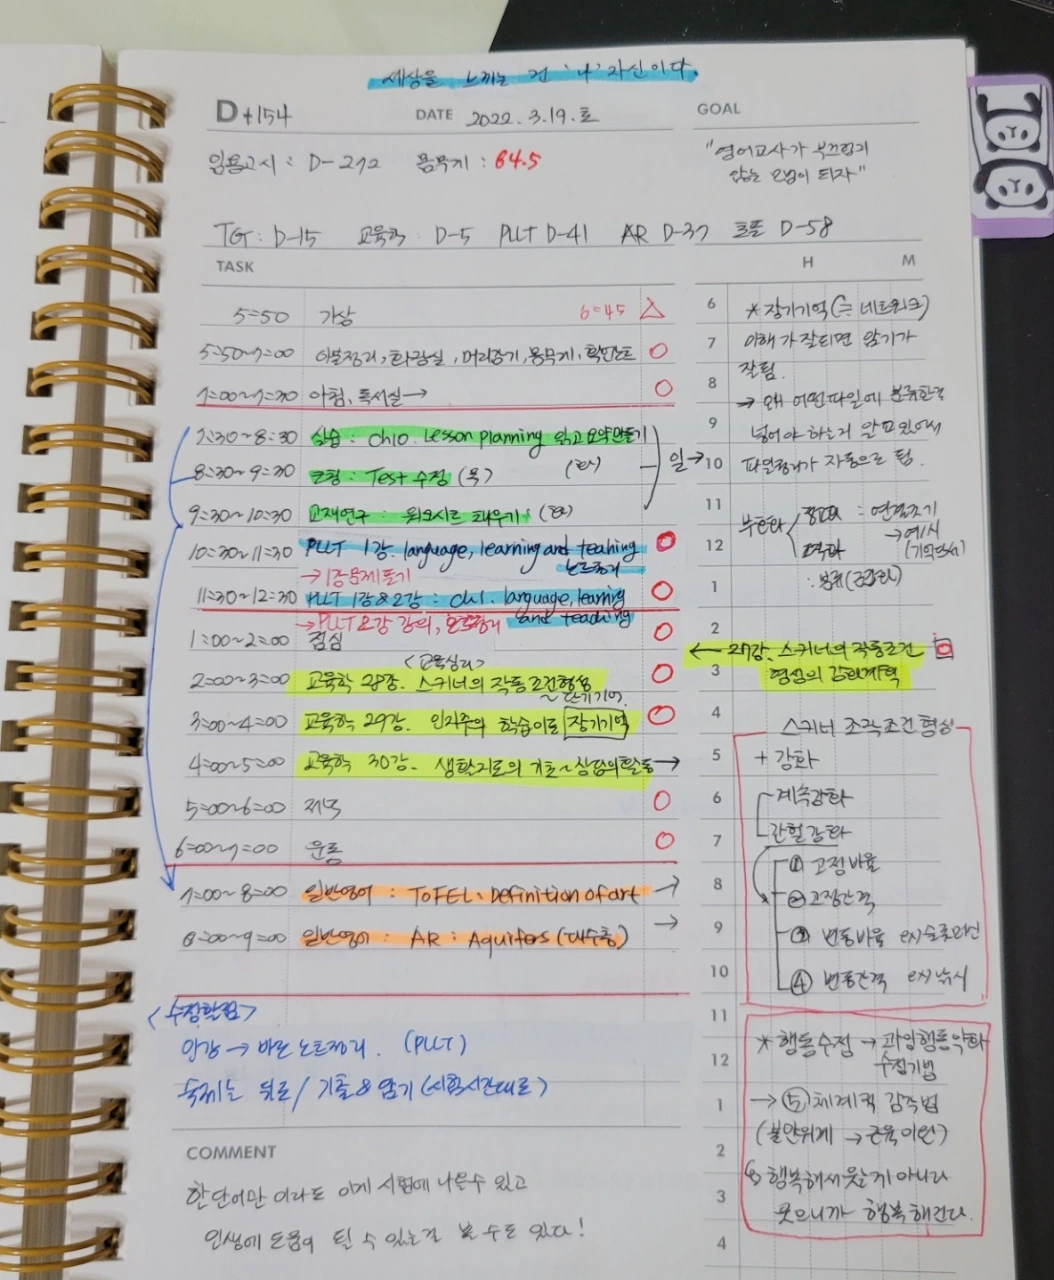 세상을 느끼는 건 '나' 자신이다.
D+154 DATE 2022.3.19.토 GOAL
임용고시 : D-272 몸무게 : 64.5
"영어교사가 부끄럽지
않는 모범이 되자"
TG : D-15 교육학 : D-5 PLLT D-41 AR D-37 토플 D-58
TASK
5:50 기상 6:45 △
5:50~7:00 이불정리, 화장실, 머리감기, 몸무게, 확언노트
7:00~7:30 아침, 독서실→
7:30~8:30 실습 : ch10. Lesson planning 읽고 요약만들기
8:30~9:30 코칭 : Test 수정
9:30~10:30 교재연구 : 워크시트 채우기
일→
10:30~11:30 PLLT 1강. language, learning and teahing
노트정리
→1강 문제풀기
11:30~12:30 PLLT 1강&2강 : ch1. language, learning
and teaching
→PLLT 2강 강의, 노트정리
1:00~2:00 점심
<교육심리>
2:00~3:00 교육학 28강. 스키너의 작동조건형성
~단기기억
3:00~4:00 교육학 29강. 인지주의 학습이론 장기기억
4:00~5:00 교육학 30강. 생활지도의 기초~상담의 활동→
5:00~6:00 저녁
6:00~7:00 운동
7:00~8:00 일반영어 : ToFEL. Definition of art →
8:00~9:00 일반영어 : AR : Aquifers (대수층) →
<수정할점>
인강→바로 노트정리. (PLLT)
숙제는 뒤로 / 기출&암기 (시험시간대로)
COMMENT
한 단어만이라도 이게 시험에 나올 수 있고
인생에 도움이 될 수 있는걸 볼 수도 있다!
H M
6
7
8
9
10
11
12
1
2
3
4
5
6
7
8
9
10
11
12
1
2
3
4
*장기기억(≒네트워크)
이해가 잘되면 암기가
잘됨.
→ 왜 어떤파일에 분류한걸
넣어야 하는지 알고있어서
파일정리가 자동으로 됨.
부호화
정교화 : 연결짓기
→예시
조직화
: 분류
← 27강. 스키너의 작동조건
형성의 강화계획
스키너 조작조건형성
+강화
계속강화
간헐강화
① 고정비율
② 고정간격
③ 변동비율 ex)슬롯머신
④ 변동간격 ex)낚시
* 행동수정 → 과잉행동약화
수정기법
→ ⑤ 체계적 감각법
(불안위계 → 근육이완)
행복해서 웃는게 아니라
웃으니까 행복해진다.